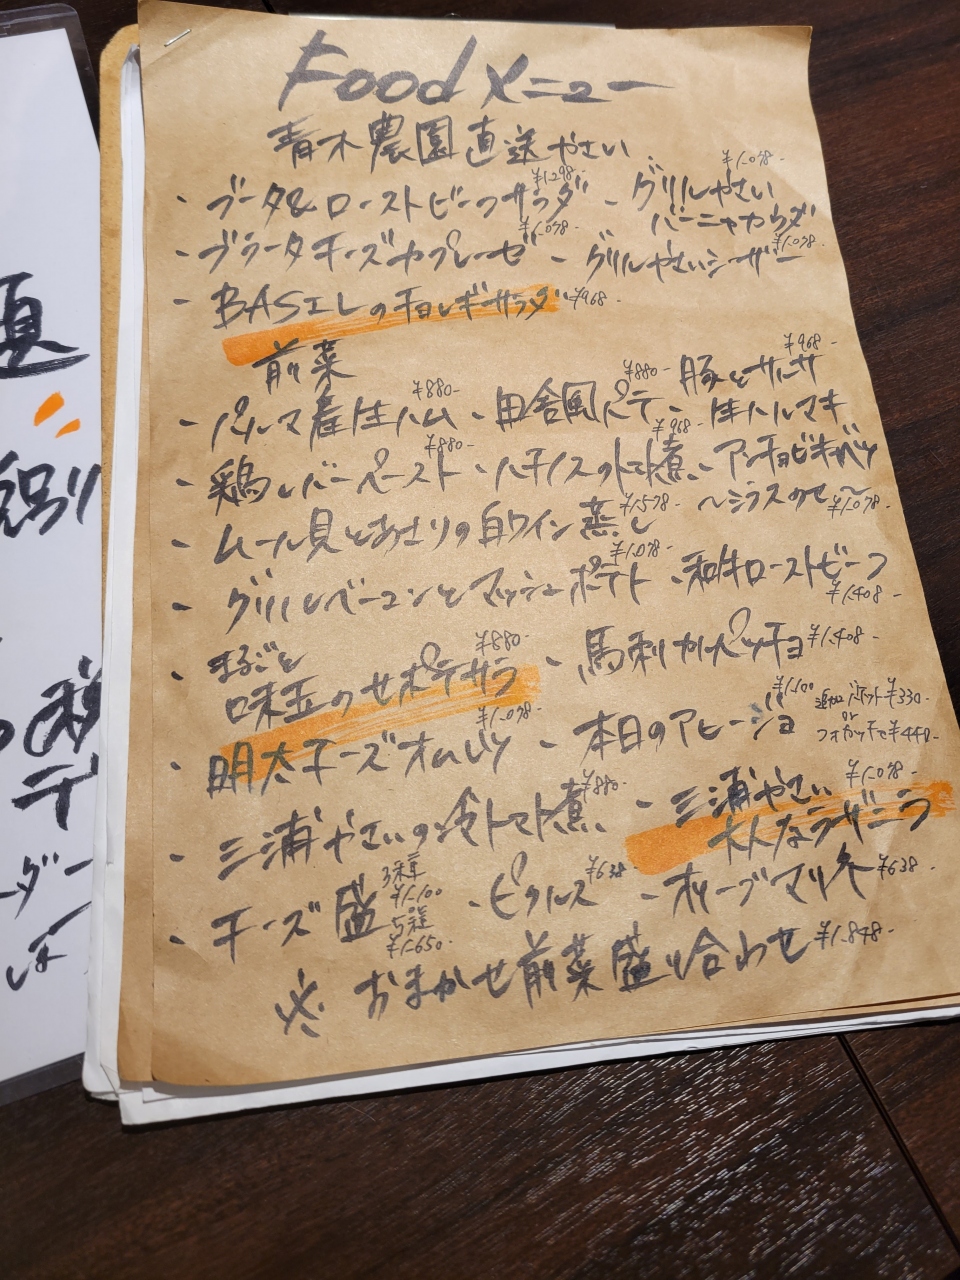 Food メニュー
青木農園直送やさい
・ブータ&ローストビーフサラダ ¥1.298- ・グリルやさい バーニャカウダ ¥1.078-
・ブラータチーズカプレーゼ ¥1.078- ・グリルやさいシーザー ¥1.078-
・BASILのチョレギサラダ ¥968-
前菜
・パルマ産生ハム ¥880- ・田舎風パテ ¥880- ・豚とサルサ 生ハルマキ ¥968-
・鶏レバーペースト ¥880- ・ハチノスのトマト煮 ¥968- ・アンチョビキャベツ ~シラスのせ~ ¥1.078-
・ムール貝とあさりの白ワイン蒸し ¥1.578-
・グリルベーコンとマッシュポテト ¥1.078- ・和牛ローストビーフ ¥1.408-
・まるごと 味玉のせポテサラ ¥880- ・馬刺カルパッチョ ¥1.408-
・明太チーズオムレツ ¥1.078- ・本日のアヒージョ ¥1.100 追加バケット¥330- or フォカッチャ¥440-
・三浦やさいの冷トマト煮 ¥880- ・三浦やさい 大人なラザニラ ¥1.078-
・チーズ盛 3種 ¥1.100 5種 ¥1.650- ・ピクルス ¥638 ・オリーブマリネ ¥638-
※ おまかせ前菜盛り合わせ ¥1.848-
夏
別
税
ダー